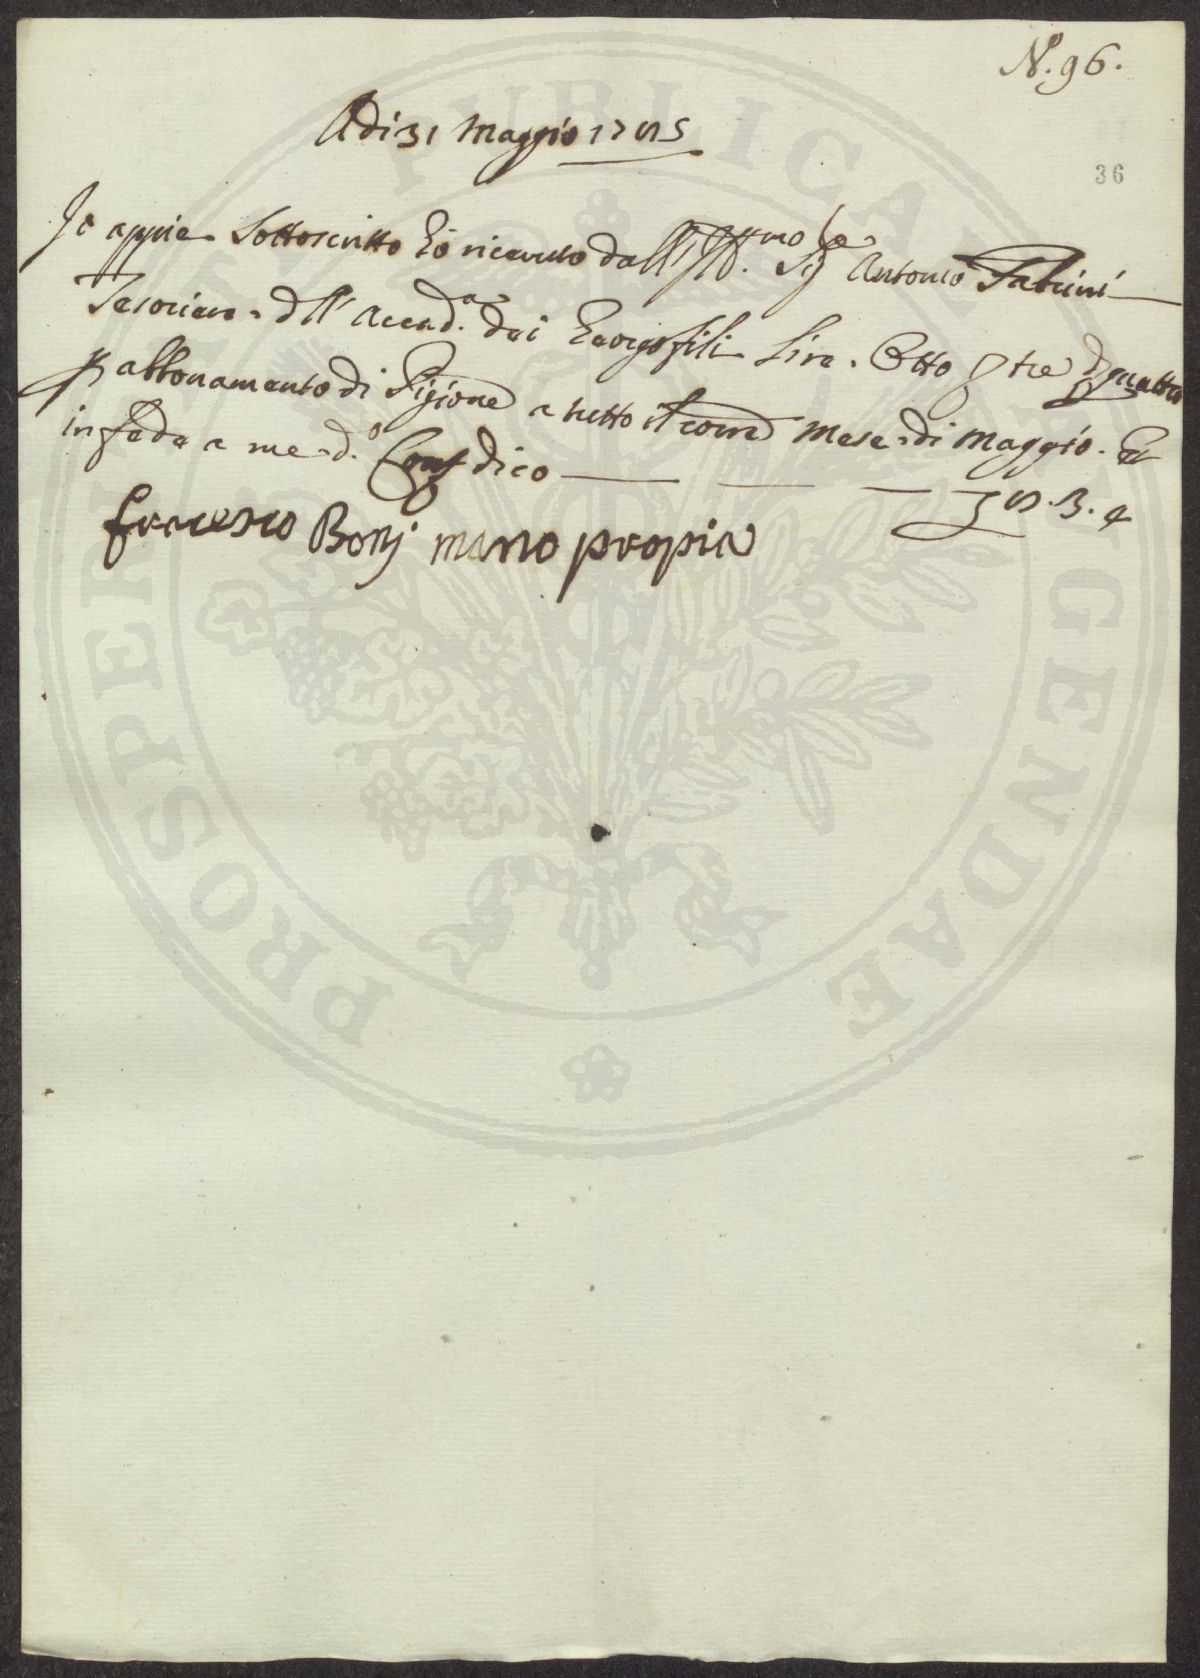 N.º 96.
Adi 31 Maggio 1785
36
Io appiè Sottoscritto ho ricevuto dall' Ill.mo Sig.re Antonio Fabrini
Tesoriere dll' Accad.a dei Georgofili Lire Otto tre quattro
p abbonamento di Pigione a tutto il corr.e Mese di Maggio. E
in fede a me d.o Cont dico 8.3.4
francesco Bonj mano propia
PROSPERITATI PUBLICAE AUGENDAE